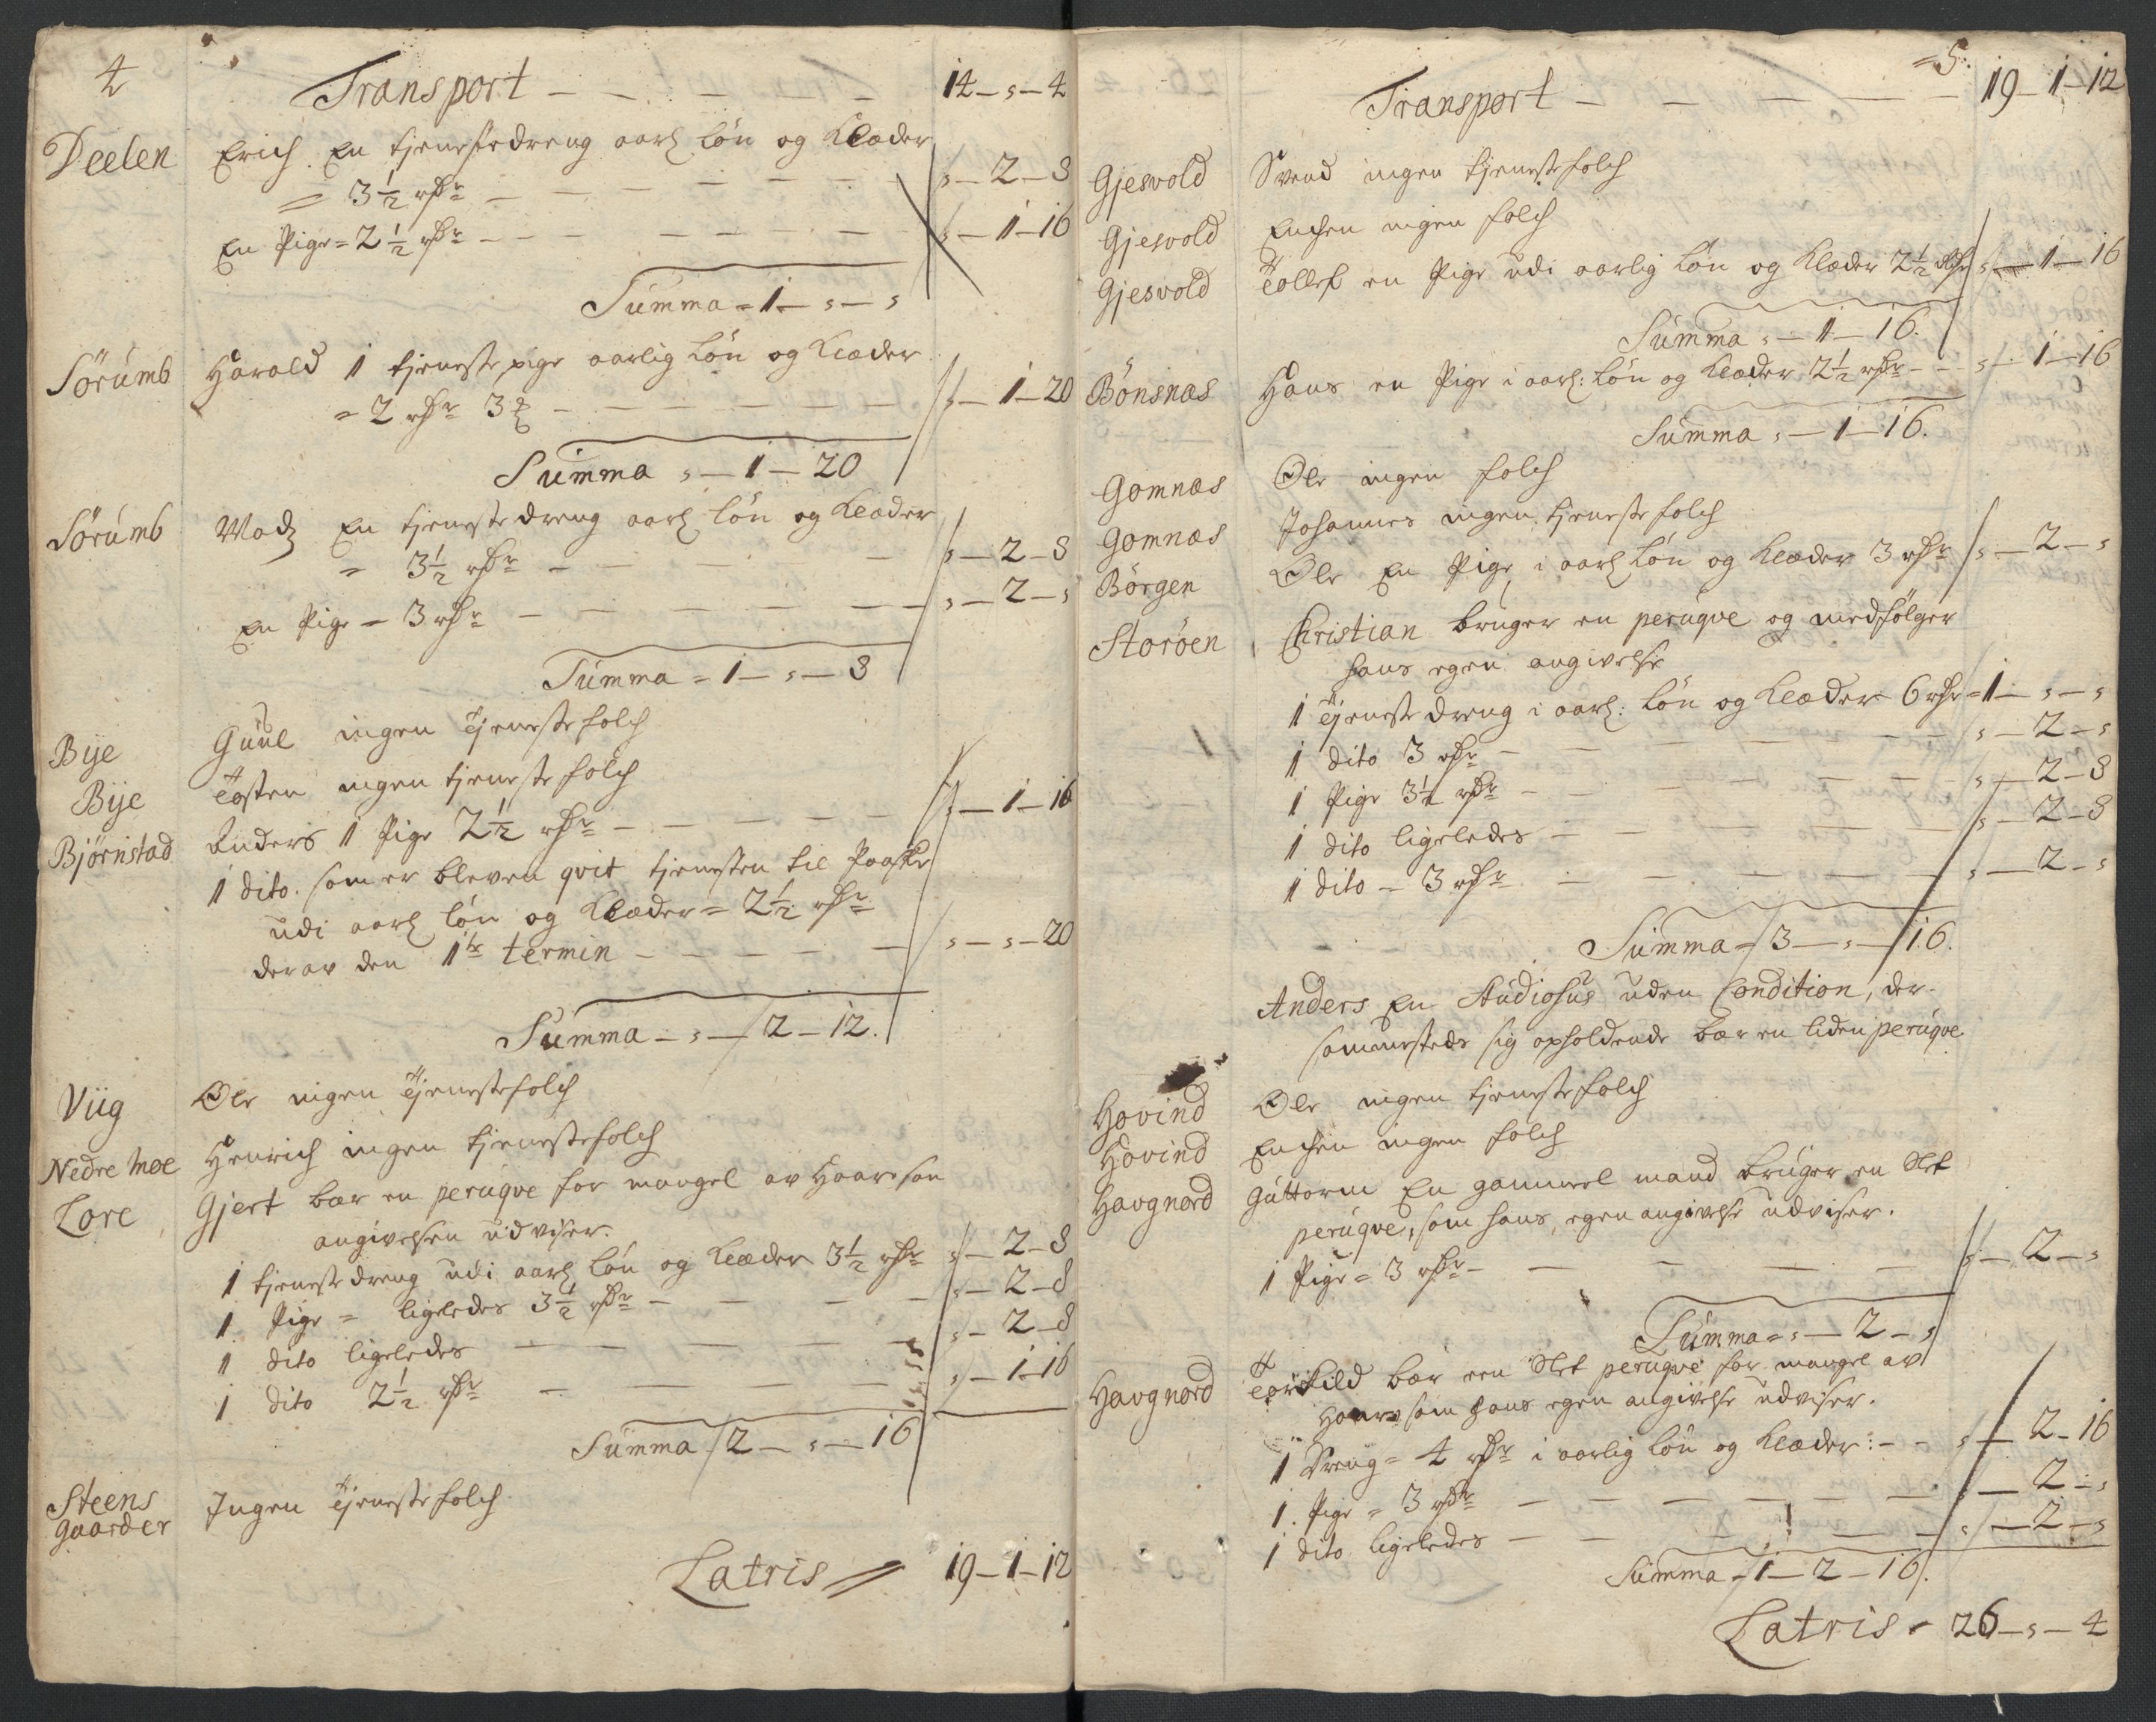 4
Transport — — — — — 14 — „ — 4
Deelen Erich En tjenistedreng aarl Løn og Klæder
= 3½ rdr — — — — — — — „ — 2 — 8
En Pige = 2½ rdr — — — — — — „ — 1 — 16
Summa = 1 — „ — „
Sörúmb Harald 1 tjeneste pige aarlig Løn og Klæder
= 2 rdr 3 — — — — — — „ — 1 — 20
Summa „ — 1 — 20
Sörúmb Madz En tjeneste dreng aarl Løn og Klæder
= 3½ rdr — — — — — „ — 2 — 8
En Pige = 3 rdr — — — — — „ — 2 — „
Summa = 1 — „ — 8
Bÿe Guul ingen Tjenestefolch
Bÿe Tosten ingen tjenestefolch
Björnstad Anders 1 Pige 2½ rdr — — — — „ — 1 — 16
1 dito. som er bleven qvit tjenesten til Paaske
udi aarl Løn og Klæder = 2½ rdr
derav den 1te termin — — — — — „ — „ — 20
Summa — „ — 2 — 12.
Viig Ole ingen Tjenestefolch
Nedre Moe Henrich ingen tjenestefolch
Lore Gjert bær en perúqve for mangel av Haar som
angivelsen udviser.
1 tjeneste dreng udi aarl Løn og Klæder 3½ rdr „ — 2 — 8
1 Pige = ligeledes 3½ rdr — — — — „ — 2 — 8
1 dito ligeledes — — — — — „ — 2 — 8
1 dito 2½ rdr — — — — — „ — 1 — 16
Summa 2 — „ — 16
Steens
Gaarder Ingen Tjenestefolch
Latris = 19 — 1 — 12
= 5.
Transport — — — — — 19 — 1 — 12
Gjesvold Svend ingen tjenestefolch
Gjesvold Enchen ingen folch
Gjesvold Tollef en Pige udi aarlig Løn og Klæder 2½ rdr „ — 1 — 16
Summa „ — 1 — 16.
Bönsnæs Hans en Pige i aarl: Løn og Klæder 2½ rdr — — „ — 1 — 16
Summa „ — 1 — 16.
Gomnæs Ole ingen folch
Gomnæs Johannes ingen tjenestefolch
Börgen Ole En Pige i aarl Løn og Klæder 3 rdr „ — 2 — „
Storöen Christian bruger en perúqve og medfølger
hans egen angivelse
1 Tjeneste dreng i aarl: Løn og Klæder 6 rdr = 1 — „ — „
1 dito 3 rdr — — — — — — „ — 2 — „
1 Pige 3½ rdr — — — — — „ — 2 — 8
1 dito ligeledes — — — — — „ — 2 — 8
1 dito = 3 rdr — — — — — „ — 2 — „
Summa = 3 — „ — 16.
Anders En Studiosus uden Condition, der-
sammesteds sig opholdende bær en liden perúqve
Hovind Ole ingen tjenestefolch
Hovind Enchen ingen folch
Havgnord Guttorm En gammel mand bruger en Slet
perúqve, som hans egen angivelse udviser.
1 Pige = 3 rdr — — — — — „ — 2 — „
Summa = „ — 2 — „
Havgnord Torkild bær een Slet perúqve for mangel av
Haar som hans egen angivelse udviser.
1 Dreng = 4 rdr i aarlig Løn og Klæder: — — „ — 2 — 16
1. Pige = 3 rdr — — — — — — „ — 2 — „
1 dito ligeledes — — — — — „ — 2 — „
Summa = 1 — 2 — 16.
Latris = 26 — „ — 4